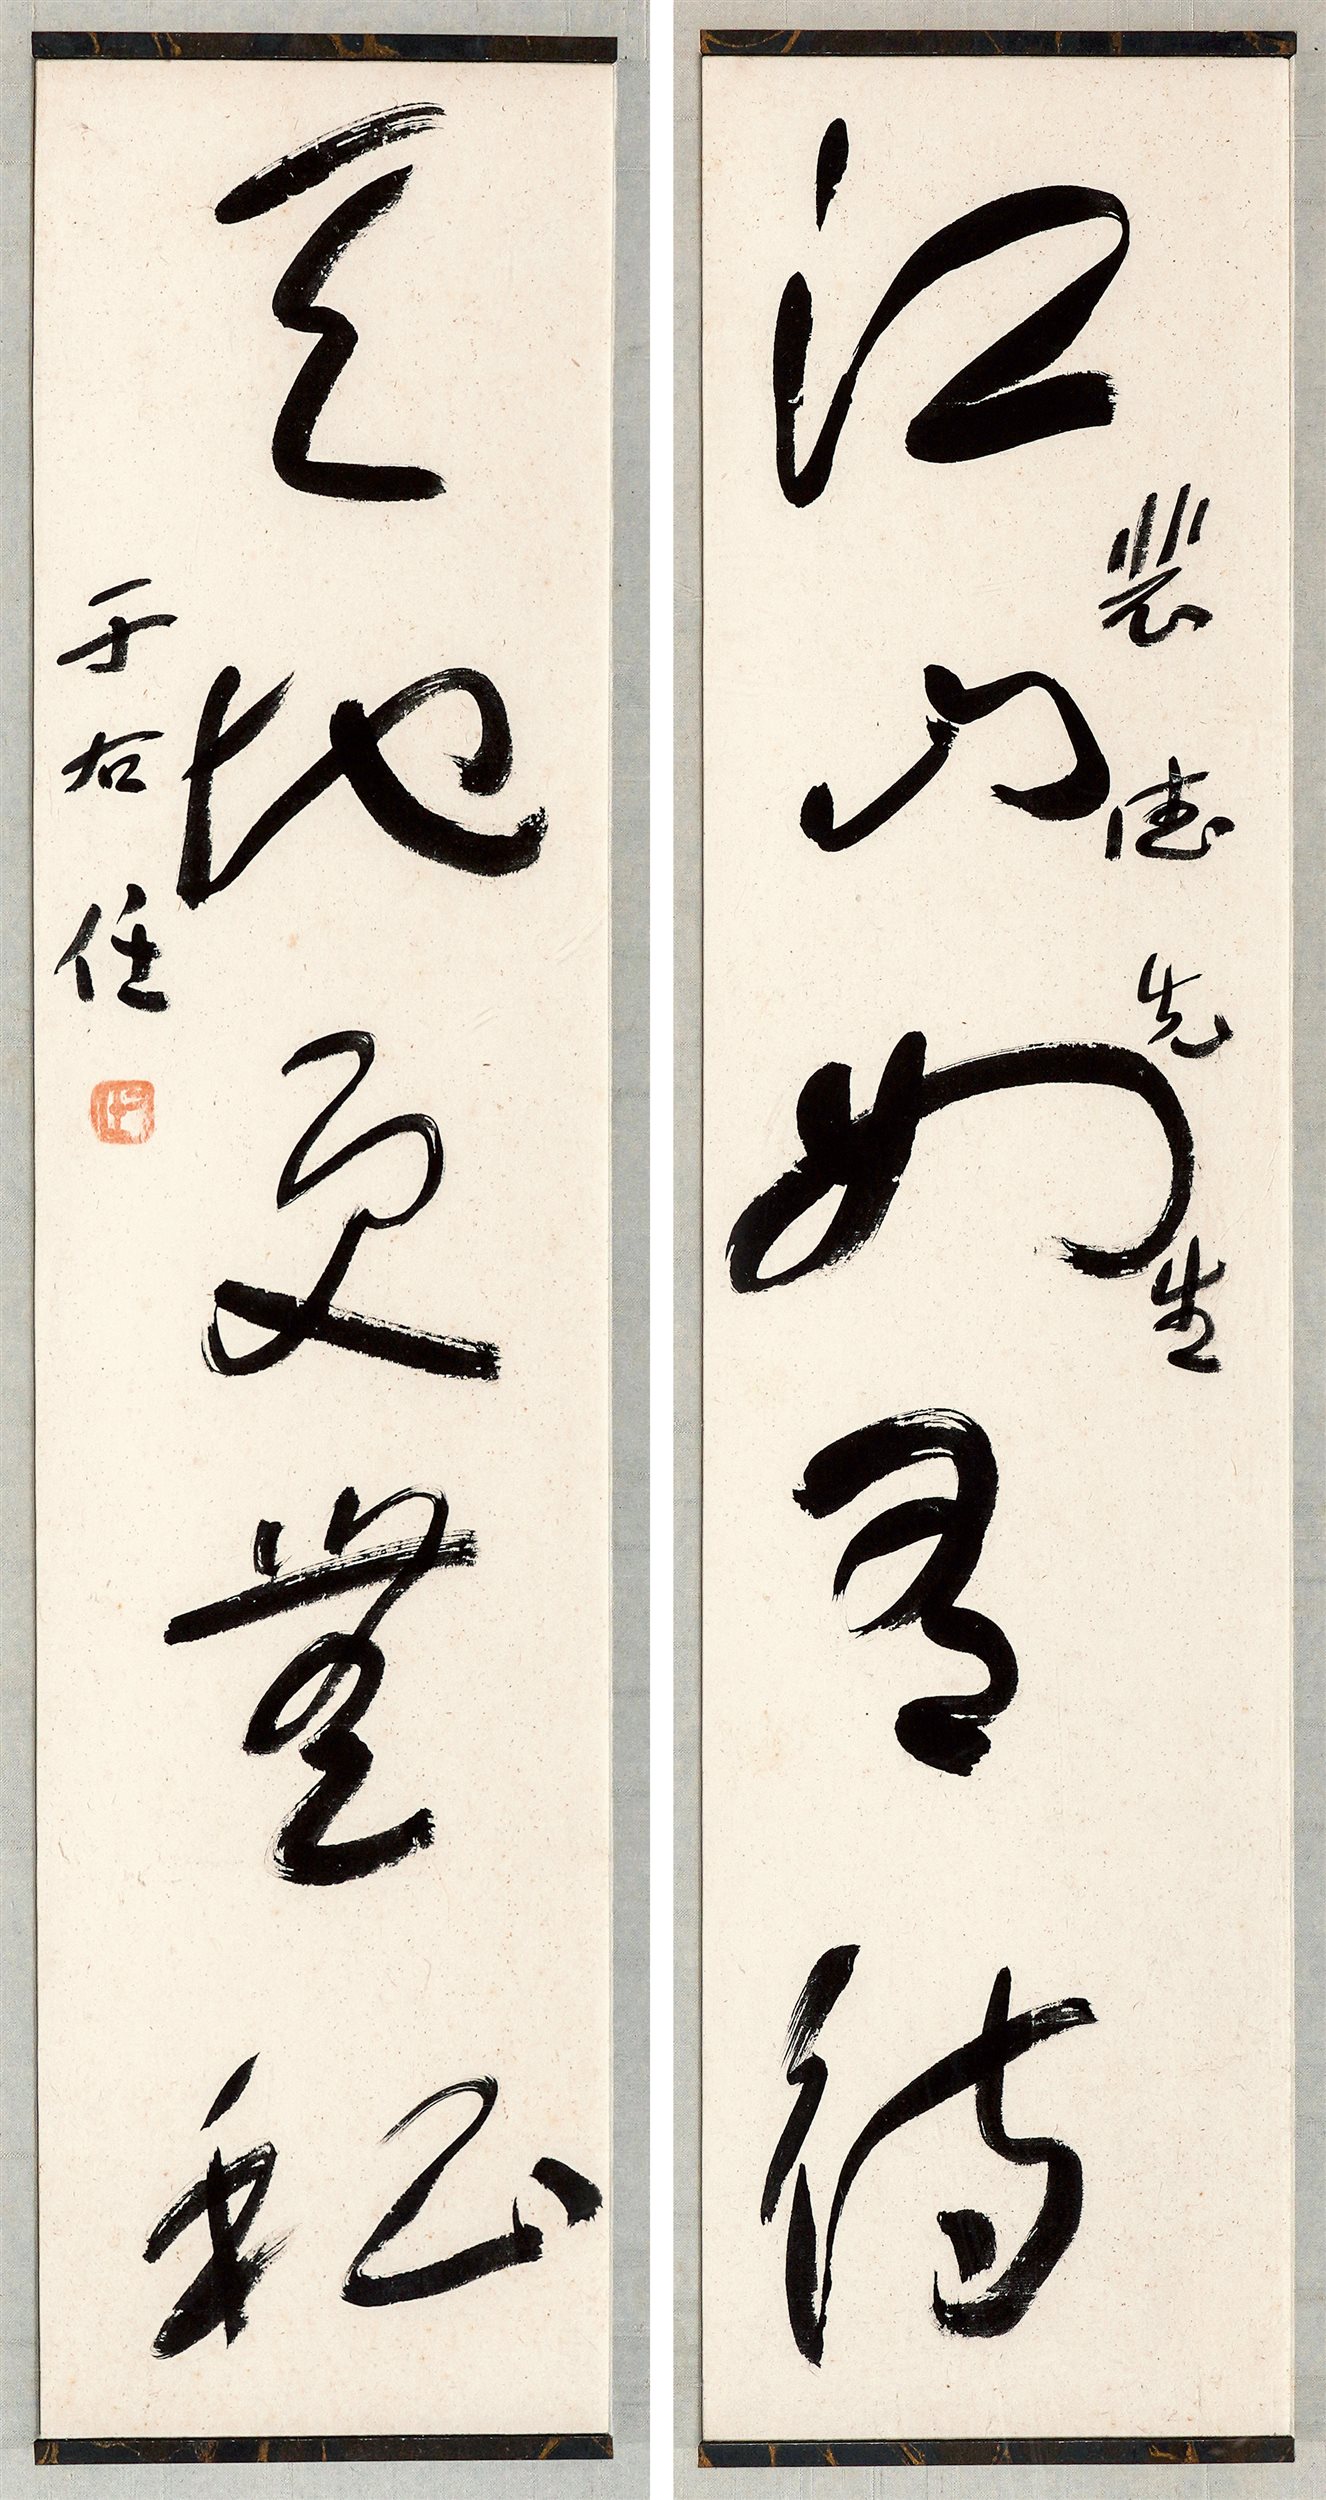 裴德先生
江山如有待
天地更無私
于右任